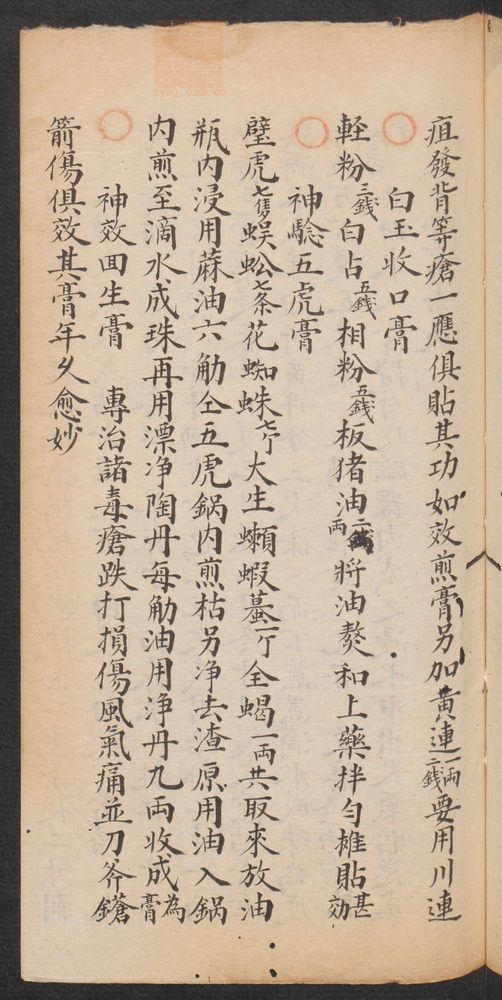 疽發背等瘡一應俱貼其功如效煎膏另加黃連一兩二錢要用川連
白玉收口膏
輕粉三錢白占五錢相粉五錢板猪油二兩將油熬和上藥拌匀摊貼甚効
神驗五虎膏
壁虎七隻蜈蚣七条花蜘蛛七个大生癩蝦蟇一个全蝎一兩共取來放油
瓶内浸用蔴油六觔仝五虎鍋内煎枯另净去渣原用油入鍋
内煎至滴水成珠再用漂净陶丹每觔油用净丹九兩收成為膏
神效回生膏 專治諸毒瘡跌打損傷風氣痛並刀斧鎗
箭傷俱效其膏年久愈妙